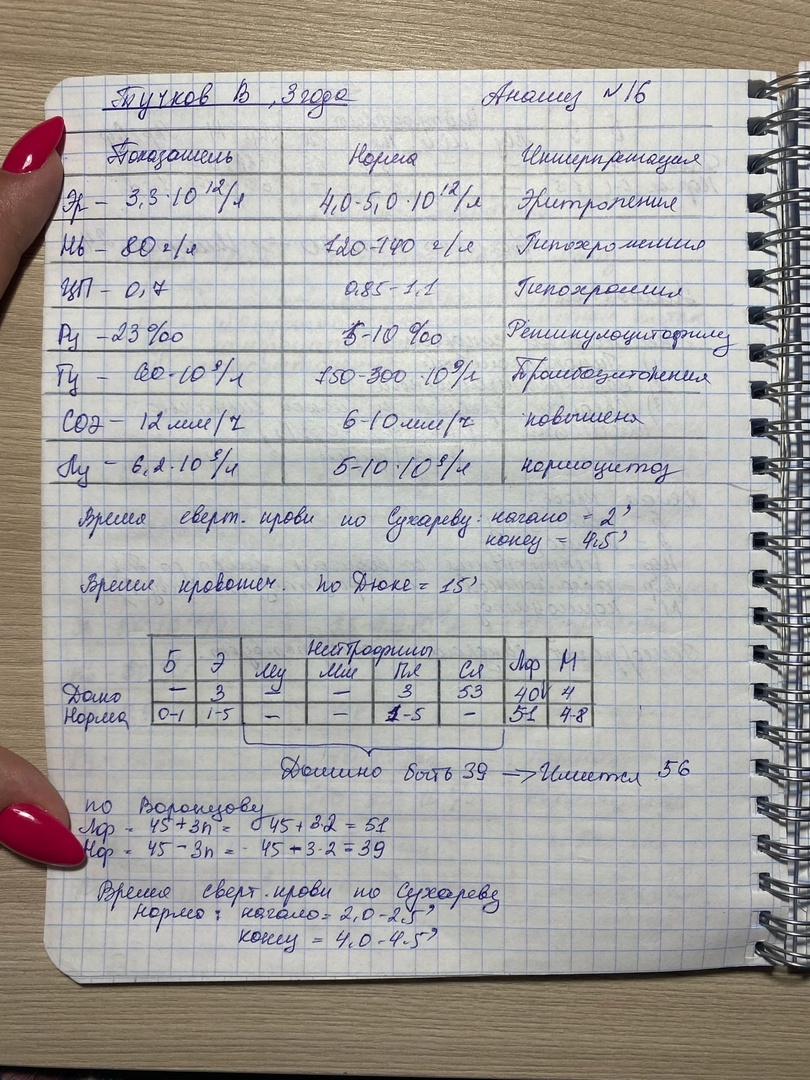 Тучков В, 3 года Анализ №16
Показатель Норма Интерпретация
Эр - 3,3·10¹²/л 4,0-5,0·10¹²/л Эритропения
Hb - 80 г/л 120-140 г/л Гипохромемия
ЦП - 0,7 0,85-1,1 Гипохромия
Рц - 23‰ 5-10‰ Ретикулоцитофилез
Тц - 60·10⁹/л 150-300·10⁹/л Тромбоцитопения
СОЭ - 12 мм/ч 6-10 мм/ч повышена
Лц - 6,2·10⁹/л 5-10·10⁹/л нормоцитоз
Время сверт. крови по Сухареву: начало = 2'
конец = 4,5'
Время кровотеч. по Дюке = 15'
Б Э Нейтрофилы Лф М
Мц Ми Пя Ся
Дано - 3 - - 3 53 40 4
Норма 0-1 1-5 - - 1-5 - 51 4-8
Должно быть 39 → Имеется 56
по Воронцову
Лф = 45+3n = 45+3·2 = 51
Нф = 45-3n = 45-3·2 = 39
Время сверт. крови по Сухареву
Норма: начало = 2,0-2,5'
конец = 4,0-4,5'